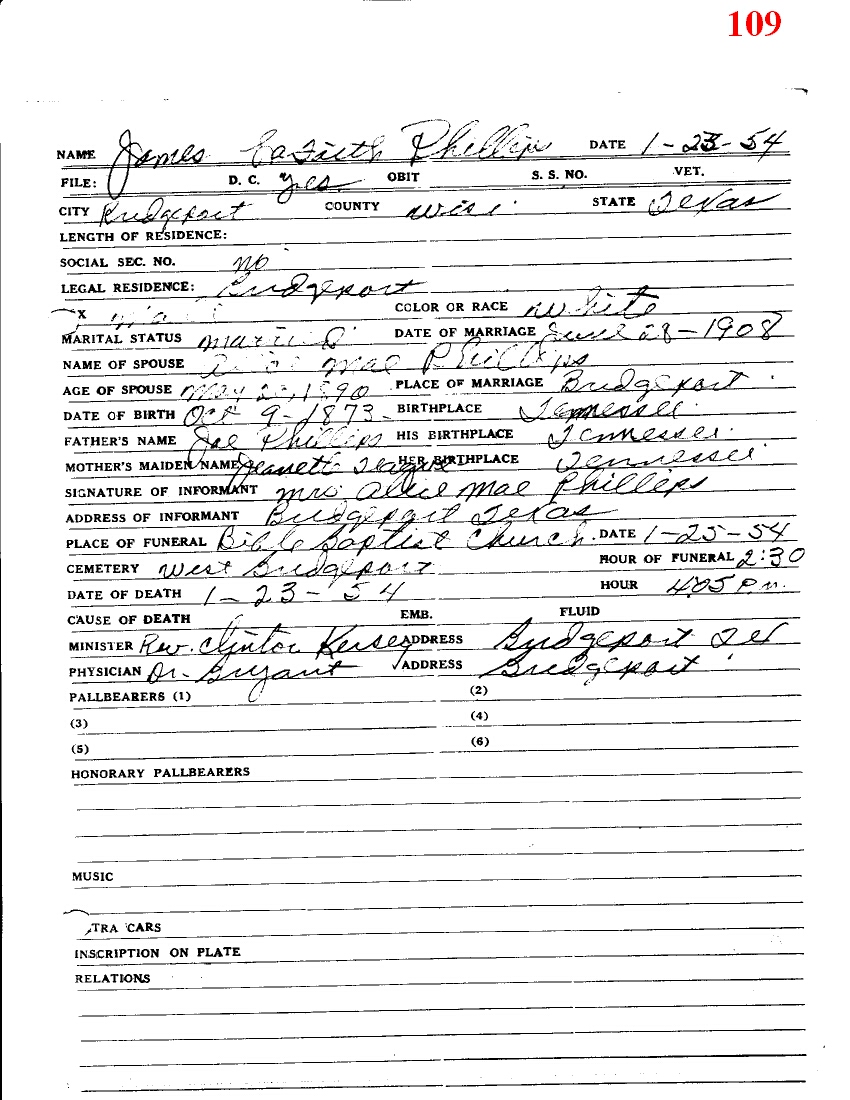 109
NAME James Phillips DATE 1-23-54
FILE: D. C. yes OBIT S. S. NO. VET.
CITY Bridgeport COUNTY Wise STATE Texas
LENGTH OF RESIDENCE:
SOCIAL SEC. NO. no
LEGAL RESIDENCE: Bridgeport
X COLOR OR RACE White
MARITAL STATUS married DATE OF MARRIAGE June 28-1908
NAME OF SPOUSE Mae Phillips
AGE OF SPOUSE May 1890 PLACE OF MARRIAGE Bridgeport
DATE OF BIRTH Oct 9-1873 BIRTHPLACE Tennessee
FATHER'S NAME Joe Phillips HIS BIRTHPLACE Tennessee
MOTHER'S MAIDEN NAME Jeanette HER BIRTHPLACE Tennessee
SIGNATURE OF INFORMANT Mrs Alice Mae Phillips
ADDRESS OF INFORMANT Bridgeport Texas
PLACE OF FUNERAL Bible Baptist Church. DATE 1-25-54
CEMETERY West Bridgeport HOUR OF FUNERAL 2:30
DATE OF DEATH 1-23-54 HOUR 4:05 P.m.
CAUSE OF DEATH EMB. FLUID
MINISTER Rev. Clinton Kersey ADDRESS Bridgeport Tex
PHYSICIAN Dr. Bryant ADDRESS Bridgeport
PALLBEARERS (1) (2)
(3) (4)
(5) (6)
HONORARY PALLBEARERS
MUSIC
TRA CARS
INSCRIPTION ON PLATE
RELATIONS